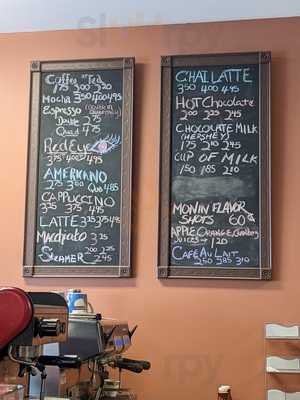 Coffee Tea
175 200 220
Mocha 350 400 495
Espresso
Double 2.75
Quad 4.75
Red Eye
375 400 495
AMERICANO
225 360 Quad 485
CAPPUCCINO
325 375 495
LATTE 325 375 495
Macchiato 325
STEAMER 245
CHAI LATTE
350 400 495
HOT Chocolate
200 225 245
CHOCOLATE MILK
(HERSHEY)
175 210 245
CUP OF MILK
150 185 210
MONIN FLAVOR
SHOTS 60¢
APPLE ORANGE
JUICES 120
CAFE AU LAIT
250 285 310